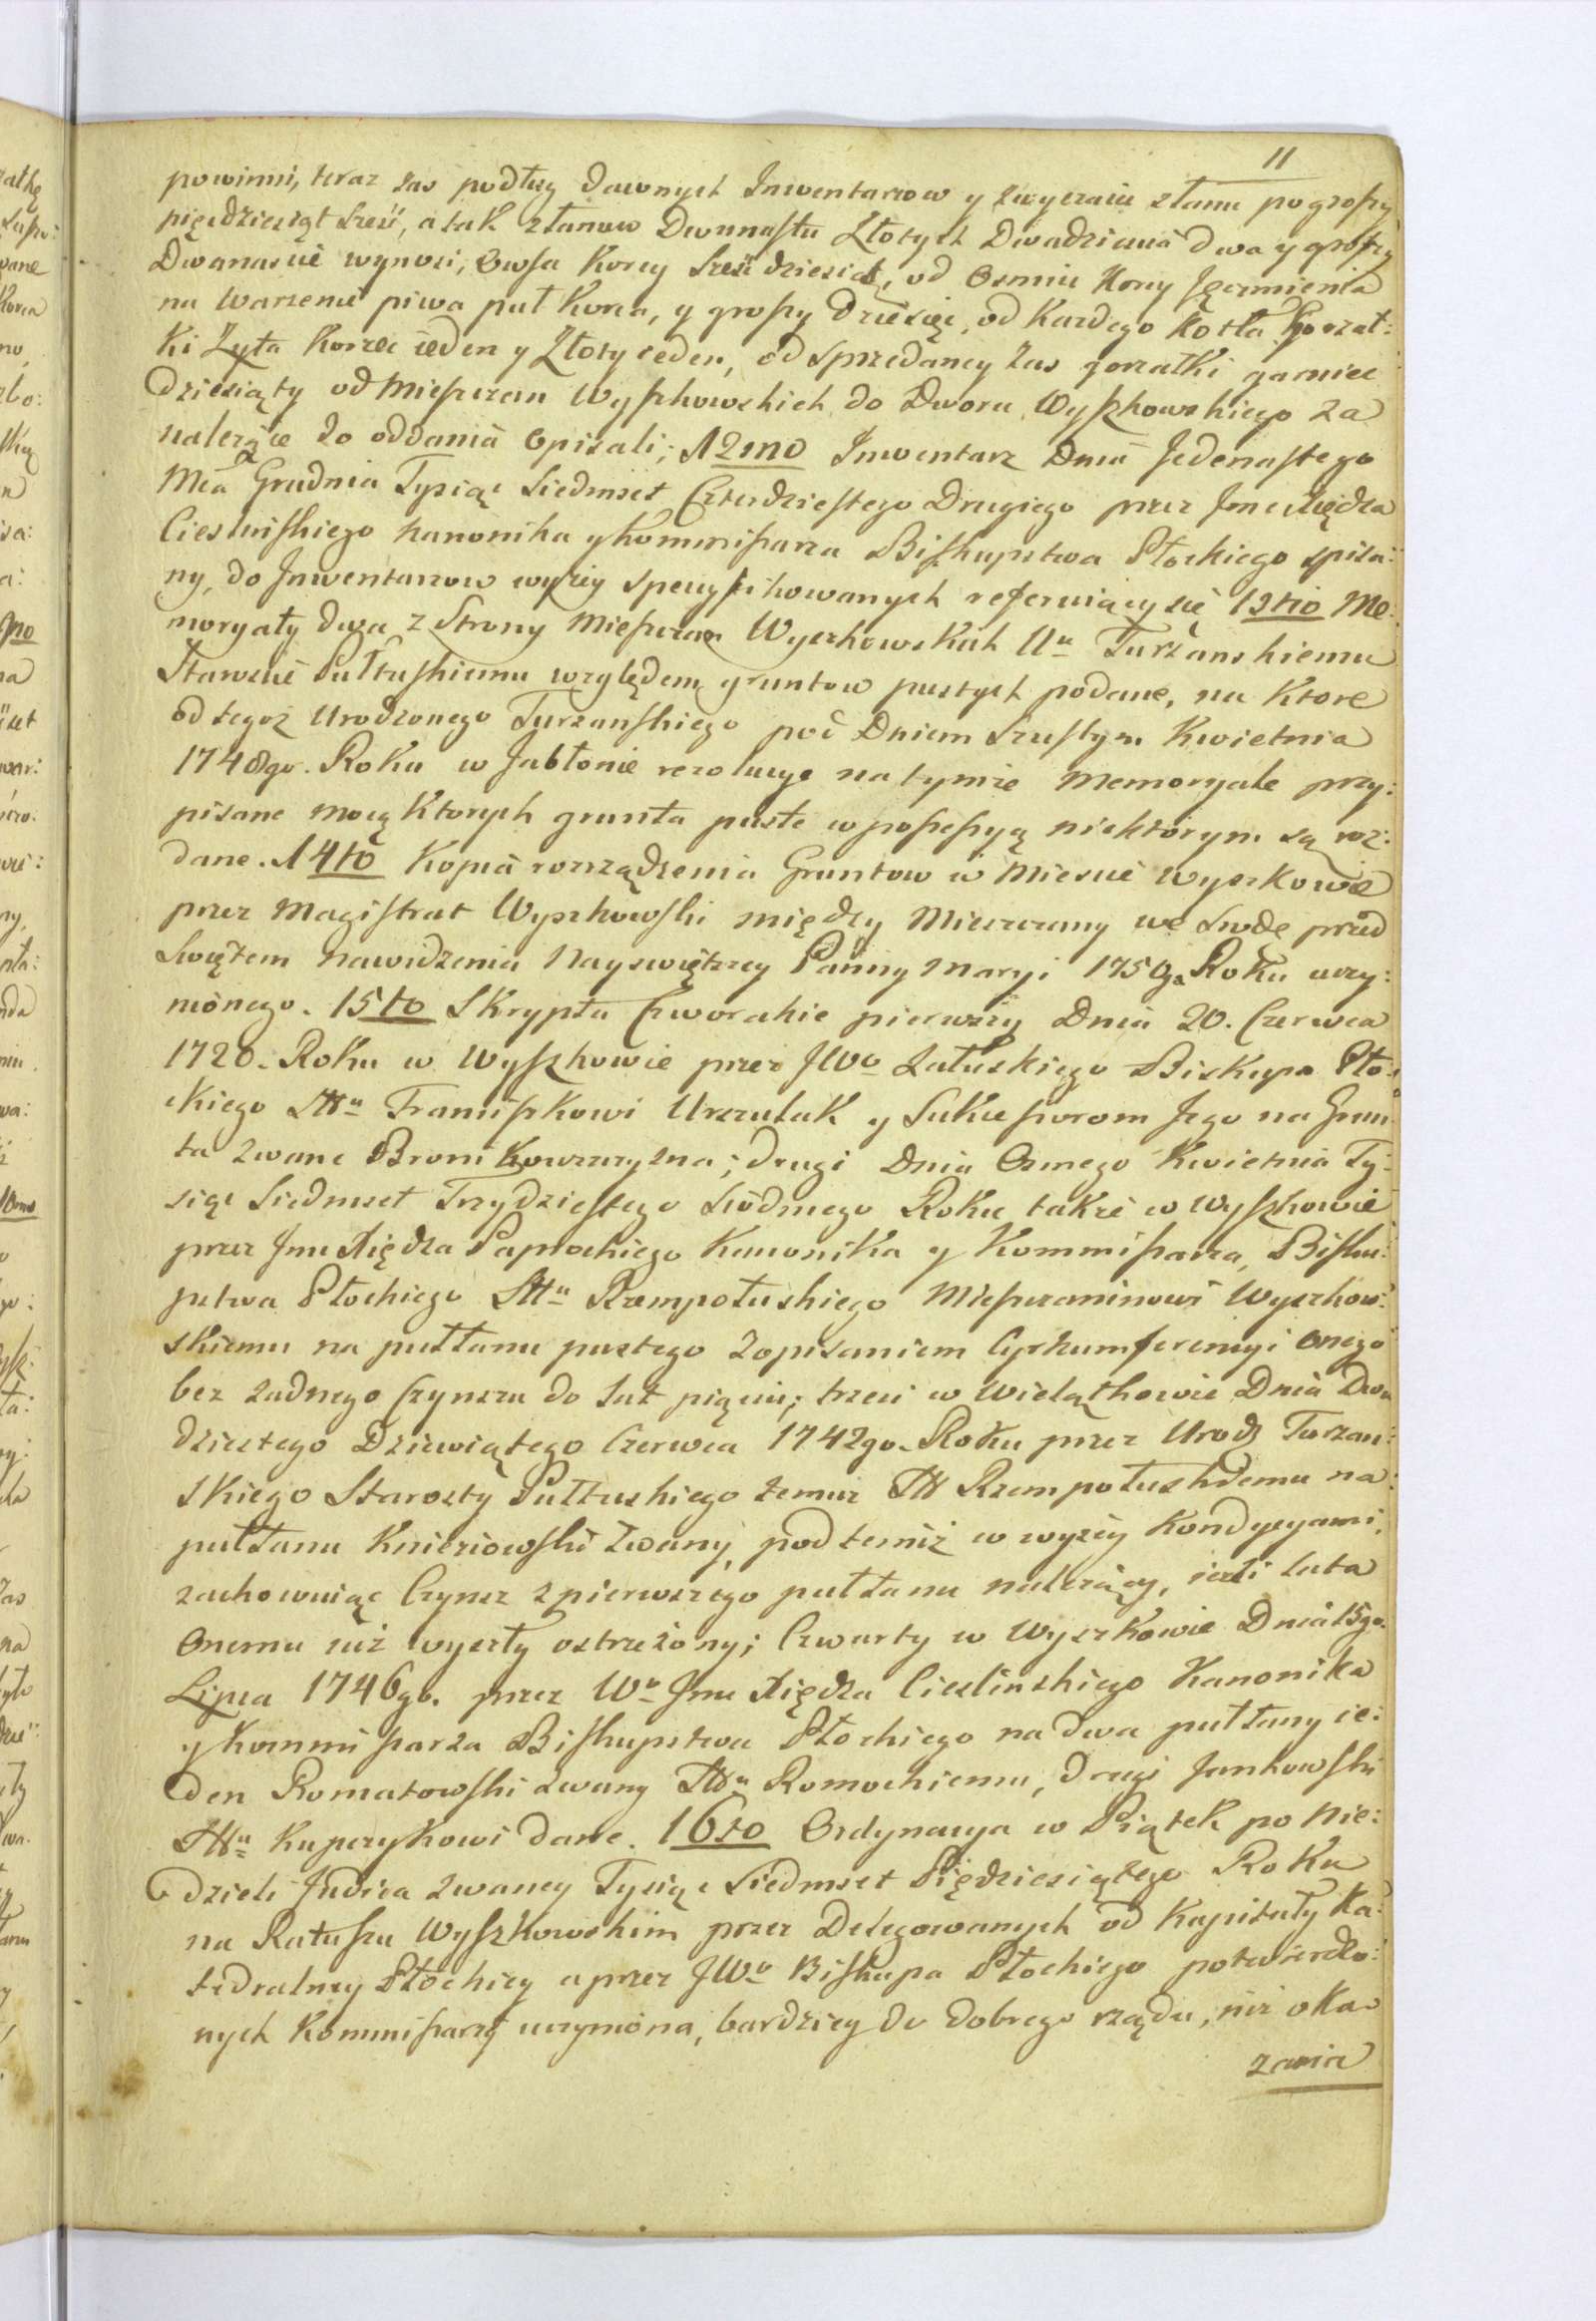 11
powinni, teraz zas podług dawnych Inwentarzow y zwyczaiu złanu pogroszy
pięcdziesiąt sześć, a tak złanow Dwunastu Złotych Dwadziescia dwa y groszy
Dwanascie wynosi, Owsa Korcy Sześćdziesiąt, od Osmiu Korcy Jęczmienia
na Warzenie piwa puł Korca, y groszy Dziesięc, od Kazdego Kotła Gorzał:
ki Zyta Korzec ieden y Złoty ieden, od sprzedaney zas gorzałki garniec
dziesiąty od Mieszczan Wyszkowskich do Dworu Wyszkowskiego za
należące do oddania opisali; 12mo Inwentarz Dnia Jedenastego
Mca Grudnia Tysiąc Siedmset Czterdziestego Drugiego przez Jmc Xiędza
Cieslinskiego Kanonika y Kommissarza Biskupstwa Płockiego spisa:
ny, do Inwentarzow wyżey specyfikowanych referuiący się 13tio Me:
moryały dwa z Strony Mieszczan Wyszkowskich Ur Turżanskiemu
Staroscie Pułtuskiemu względem gruntow pustych podane, na Ktore
od tegoż Urodzonego Turzanskiego pod Dniem Szustym Kwietnia
1748go. Roku w Jabłonie rezolucye na tymże Memoryale przy:
pisane mocą Ktorych grunta puste w possessyą niektórym są roz:
dane. 14to Kopia rozrządzenia Gruntow w Miescie Wyszkowie
przez Magistrat Wyszkowski między Mieszczany we Srodę przed
Swiętem Nawidzenia Nayswiętszey Panny Maryi 1750go Roku uczy:
nionego. 15to Skrypta Czworakie pierwszy Dnia 20. Czerwca
1728. Roku w Wyszkowie przez JWo Załuskiego Biskupa Pło:
ckiego Franciszkowi Urszulak y Sukcessorom Jego na Grun
ta zwane Bronikowszczyzna; drugi Dnia Osmego Kwietnia Ty:
siąc Siedmset Trzydziestego Siodmego Roku także w Wyszkowie
przez Jmc Xiędza Paprockiego Kanonika y Kommissarza, Bisku:
pstwa Płockiego Rzempołuskiego Mieszczaninowi Wyszkow:
skiemu na pułłanu pustego z opisaniem Cyrkumferencyi onego
bez żadnego Czynszu do lat pięciu; trzeci w Wielątkowie Dnia Dwu
dziestego Dziewiątego Czerwca 1742go. Roku przez Urodz Turzan:
skiego Starosty Pułtuskiego temuż Rzempołuskiemu na
pułłanu Knieziowski zwany, pod temiż w wyżey Kondycyami,
zachowuiąc Czynsz z pierwszego pułłanu należący, iezli lata
onemu iuż wyszły ostrzeżony; Czwarty w Wyszkowie Dnia 15go.
Lipca 1746go. przez Wo Jmc Xiędza Cieslinskiego Kanonika
y Kommissarza Biskupstwa Płockiego na dwa pułłany ie:
den Romatowski zwany Romockiemu, drugi Jankowski
Kupczykowi dane. 16to Ordynacya w Piątek po Nie:
dzieli Judica zwaney Tysiąc Siedmset Pięcdziesiątego Roku
na Ratuszu Wyszkowskim przez Delegowanych od Kapituły Ka:
tedralney Płockiey a przez JWo Biskupa Płockiego potwierdzo:
nych Kommissarzy uczyniona, bardziey do dobrego rządu, niż oka:
zania